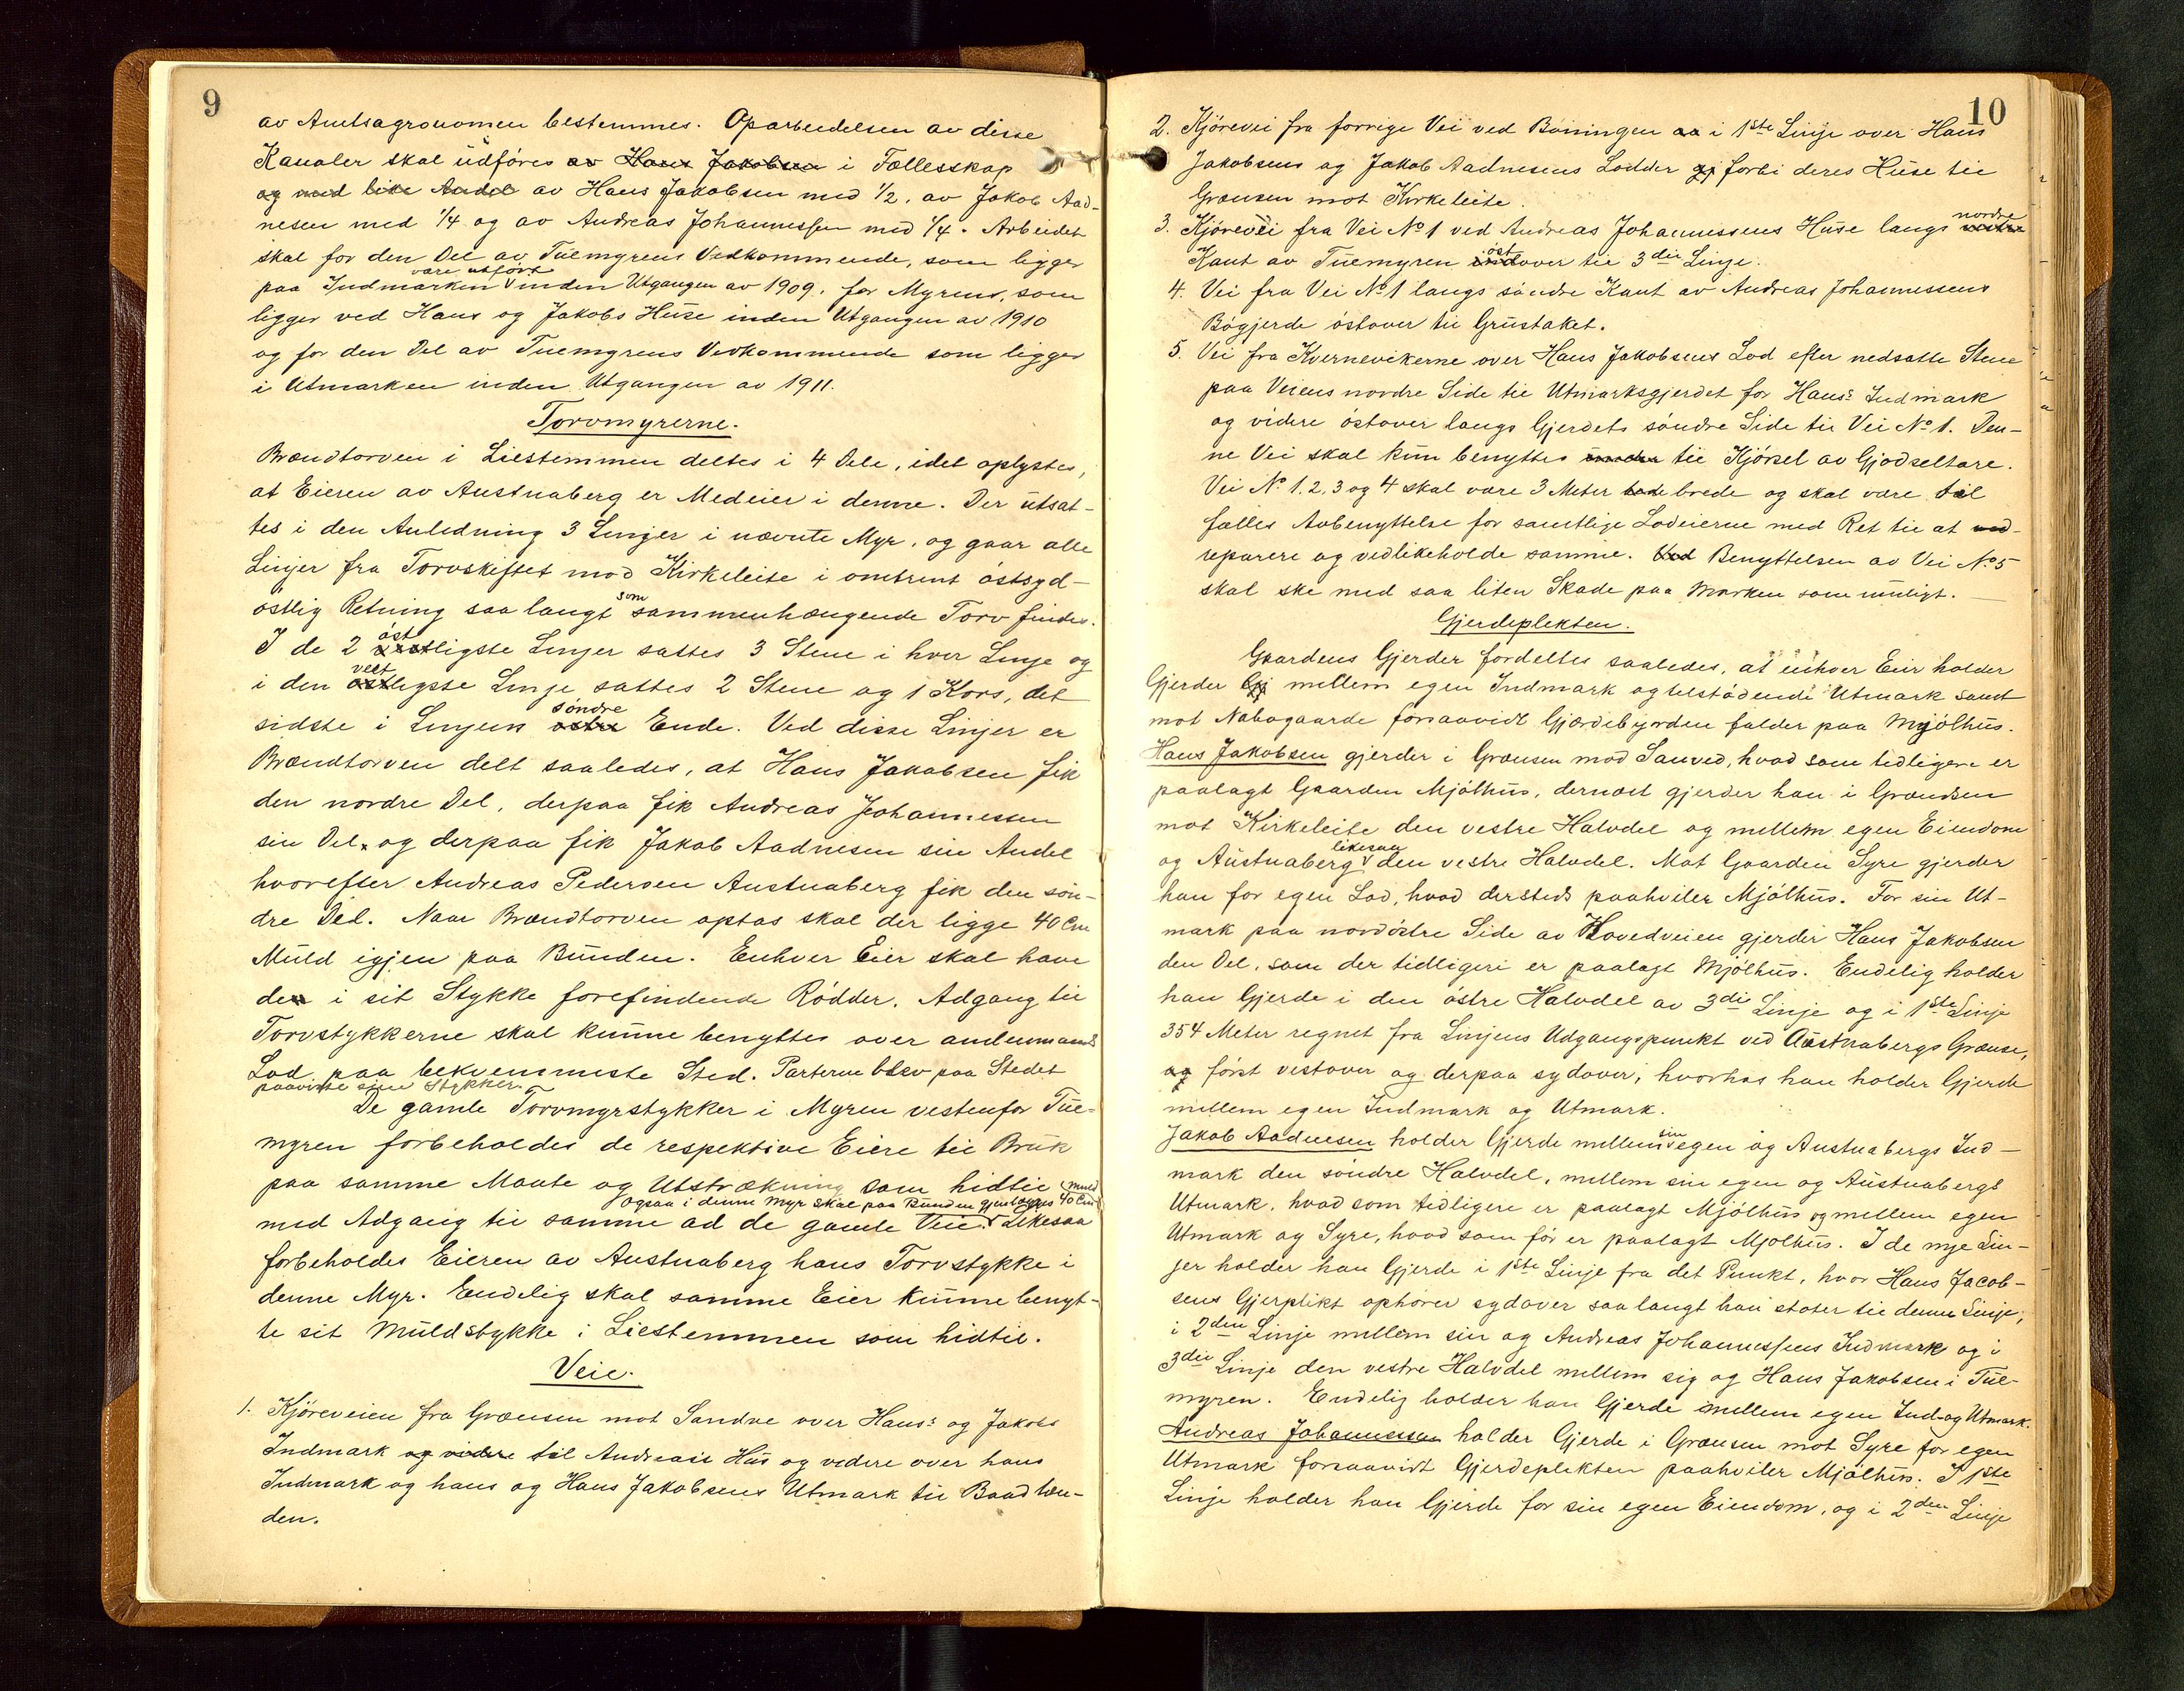 9
av Amtsagronomen bestemmes. Oparbeidelsen av disse
Kanaler skal udföres av Hans Jakobsen i Fællesskap
og med like Andel av Hans Jakobsen med 1/2, av Jakob Aad-
nesen med 1/4 og av Andreas Johannessen med 1/4. Arbeidet
skal for den Del av Tuemyrens Vedkommende, som ligger
være utfört
paa Indmarken inden Utgangen av 1909, for Myrens, som
ligger ved Hans og Jakobs Huse inden Utgangen av 1910
og for den Del av Tuemyrens Vedkommende som ligger
i Utmarken inden Utgangen av 1911.
Torvmyrerne.
Brændtorven i Liestemmen deltes i 4 Dele, idet oplystes,
at Eieren av Austnaberg er Medeier i denne. Der utsat-
tes i den Anledning 3 Linjer i nævnte Myr, og gaar alle
Linjer fra Torvskiftet mod Kirkeleite i omtrent östsyd-
som
östlig Retning saa langt sammenhængende Torv findes.
öst
I de 2 vestligste Linjer sattes 3 Stene i hver Linje og
vest
i den östligste Linje sattes 2 Stene og 1 Kors, det
söndre
sidste i Linjens östre Ende. Ved disse Linjer er
Brændtorven delt saaledes, at Hans Jakobsen fik
den nordre Del, derpaa fik Andreas Johannessen
sin Del, og derpaa fik Jakob Aadnesen sin Andel
hvorefter Andreas Pedersen Austnaberg fik den sön-
dre Del. Naar Brændtorven optas skal der ligge 40 Cm
Muld igjen paa Bunden. Enhver Eier skal have
den i sit Stykke forefindende Rödder. Adgang til
Torvstykkerne skal kunne benyttes over andenmands
Lod paa bekvemmeste Sted. Parterne blev paa Stedet
paaviste sine Stykker.
De gamle Torvmyrstykker i Myren vestenfor Tue-
myren forbeholdes de respektive Eiere til Bruk
paa samme Maate og Utstrækning som hidtil
ogsaa i denne Myr skal paa Bunden gjenlægges 40 Cm Muld
med Adgang til samme ad de gamle Veie. Likesaa
forbeholdes Eieren av Austnaberg hans Torvstykke i
denne Myr. Endelig skal samme Eier kunne benyt-
te sit Muldstykke i Liestemmen som hidtil.
Veie.
1. Kjöreveien fra Grænsen mot Sandve over Hans's og Jakobs
Indmark og videre til Andreas's Hus og videre over hans
Indmark og hans og Hans Jakobsens Utmark til Baadlæn-
den.
10
2. Kjörevei fra forrige Vei ved Böiningen aa i 1ste Linje over Hans
Jakobsens og Jakob Aadnesens Lodder gj forbi deres Huse til
Grænsen mot Kirkeleite.
nordre
3. Kjörevei fra Vei No 1 ved Andreas Johannessens Huse langs vestre
öst
Kant av Tuemyren indover til 3die Linje.
4. Vei fra Vei No 1 langs söndre Kant av Andreas Johannessens
Bögjerde östover til Grustaket.
5. Vei fra Kvernevikerne over Hans Jakobsens Lod efter nedsatte Stene
paa Veiens nordre Side til Utmarksgjerdet for Hans's Indmark
og videre östover langs Gjerdets söndre Side til Vei No 1. Den-
ne Vei skal kun benyttes til Kjörsel av Gjödseltare.
Vei No 1, 2, 3 og 4 skal være 3 Meter brede og skal være til
fælles Avbenyttelse for samtlige Lodeierne med Ret til at ved-
reparere og vedlikeholde samme. Ved Benyttelsen av Vei No 5
skal ske med saa liten Skade paa Marken som muligt.
Gjerdeplikten.
Gaardens Gjerder fordeltes saaledes, at enhver Eier holder
Gjerder Gj mellem egen Indmark og tilstödende Utmark samt
mot Nabogaarde forsaavidt Gjærdebyrden falder paa Mjölhus.
Hans Jakobsen gjerder i Grænsen mod Sanved, hvad som tidligere er
paalagt Gaarden Mjölhus, dernæst gjerder han i Grændsen
mot Kirkeleite den vestre Halvdel og mellem egen Eiendom
likesaa
og Austnaberg den vestre Halvdel. Mot Gaarden Syre gjerder
han for egen Lod, hvad dersteds paahviler Mjölhus. For sin Ut-
mark paa nordöstre Side av Hovedveien gjerder Hans Jakobsen
den Del, som der tidligere er paalagt Mjölhus. Endelig holder
han Gjerde i den östre Halvdel av 3die Linje og i 1ste Linje
354 Meter regnet fra Linjens Udgangspunkt ved Austnabergs Grænse,
og först vestover og derpaa sydover, hvorhos han holder Gjerde
mellem egen Indmark og Utmark.
sin
Jakob Aadnesen holder Gjerde mellem egen og Austnabergs Ind-
mark den söndre Halvdel, mellem sin egen og Austnabergs
Utmark, hvad som tidligere er paalagt Mjölhus og mellem egen
Utmark og Syre, hvad som för er paalagt Mjölhus. I de nye Lin-
jer holder han Gjerde i 1ste Linje fra det Punkt, hvor Hans Jacob-
sens Gjerplikt ophörer sydover saa langt han stöter til denne Linje,
i 2den Linje mellem sin og Andreas Johannessens Indmark og i
3die Linje den vestre Halvdel mellem sig og Hans Jakobsen i Tue-
myren. Endelig holder han Gjerde mellem egen Ind- og Utmark.
Andreas Johannessen holder Gjerde i Grænsen mot Syre for egen
Utmark forsaavidt Gjerdeplikten paahviler Mjölhus. I 1ste
Linje holder han Gjerde for sin egen Eiendom, og i 2den Linje